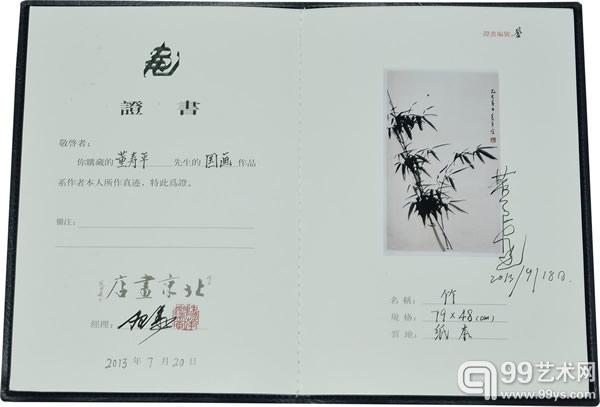 證書
敬啓者：
你購藏的 董寿平 先生的 国画 作品
系作者本人所作真迹，特此爲證。
備注：
北京畫店
經理：
2013 年 7 月 20 日
證書編號：
名稱： 竹
規格： 79×48(cm)
質地： 紙本
99艺术网
www.99ys.com